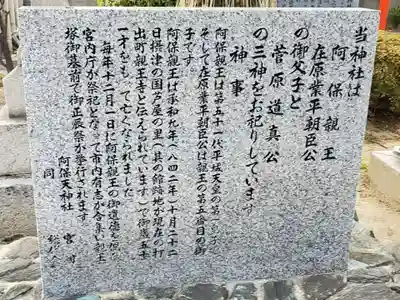 当神社は
阿保親王
在原業平朝臣公
の御父子と
菅原道真公
の三神をお祀りしています
神事
阿保親王は第五十一代平城天皇の第一
そして在原業平朝臣公は親王の第五番目の御
子です
阿保親王は承和九年(八四二年)十月二十二
日摂津の国芦屋の里(其の館跡地が現在の打
出町親王寺と伝えられています)で御歳五十
一才をもって亡くなられました
毎年十二月一日に阿保親王の御遺徳を偲
宮内庁が祭祀となって市内有志が合集い親王
塚御墓前で御正辰祭が挙行されます
阿保天神社 宮
同